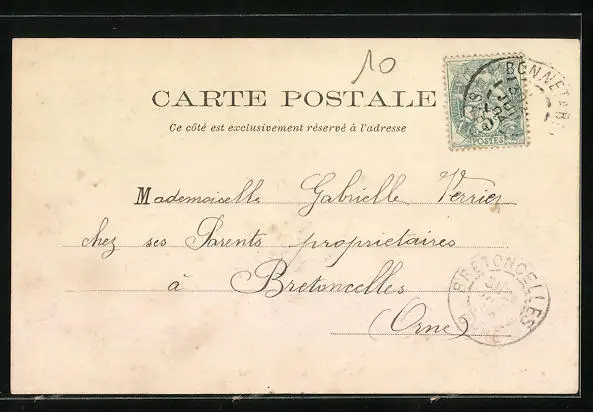 10
CARTE POSTALE
Ce côté est exclusivement réservé à l'adresse
POSTES
BONNETABLE
Mademoiselle Gabrielle Verrier
chez ses Parents proprietaires
à Bretoncelles
(Orne)
BRETONCELLES
ORNE